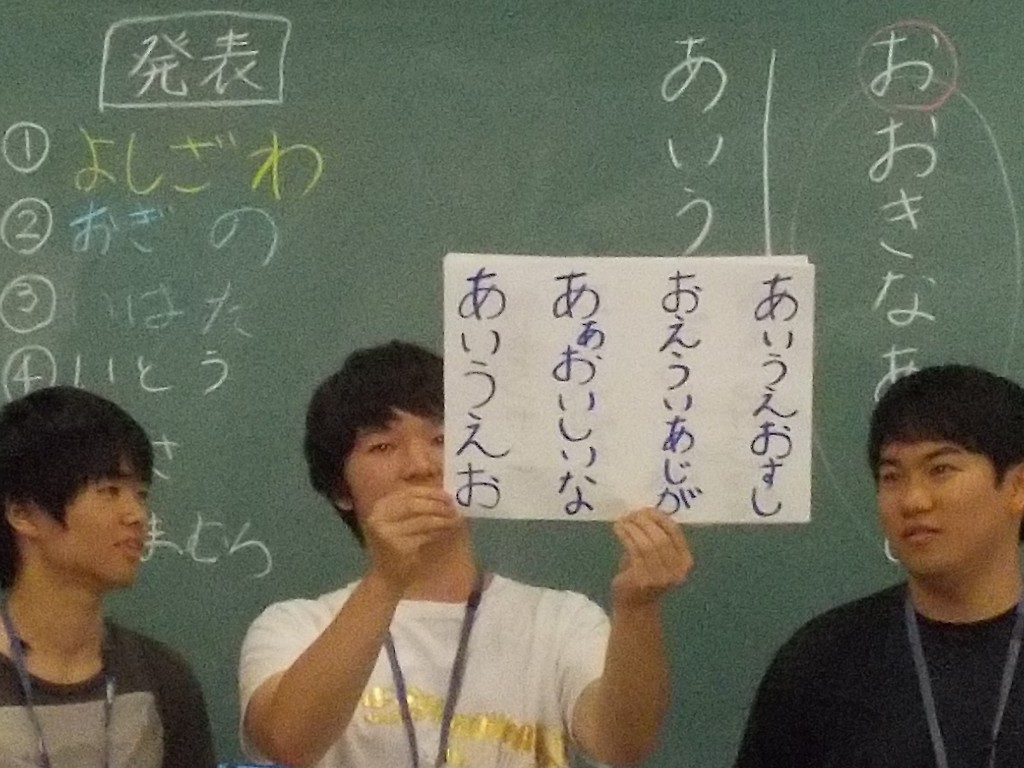 発表
① よしざわ
② おぎの
③ いはた
④ いとう
さ
まむら
お
おきなあ
あいう
あいうえおすし
おえういあじが
あぁおいしいな
あいうえお